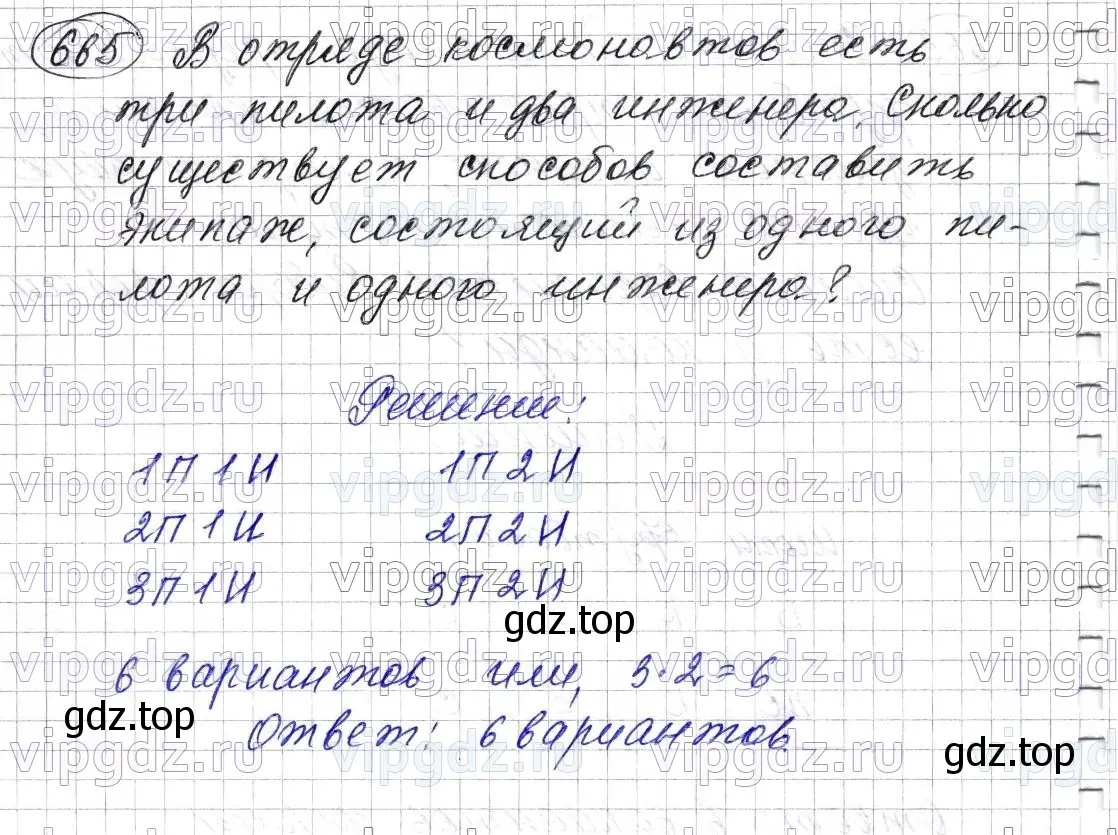 665 В отряде космонавтов есть
три пилота и два инженера. Сколько
существует способов составить
экипаж, состоящий из одного пи-
лота и одного инженера?
Решение:
1П 1И 1П 2И
2П 1И 2П 2И
3П 1И 3П 2И
gdz.top
6 вариантов или, 3·2=6
gdz.top
Ответ: 6 вариантов.
gdz.top
vipgdz.ru